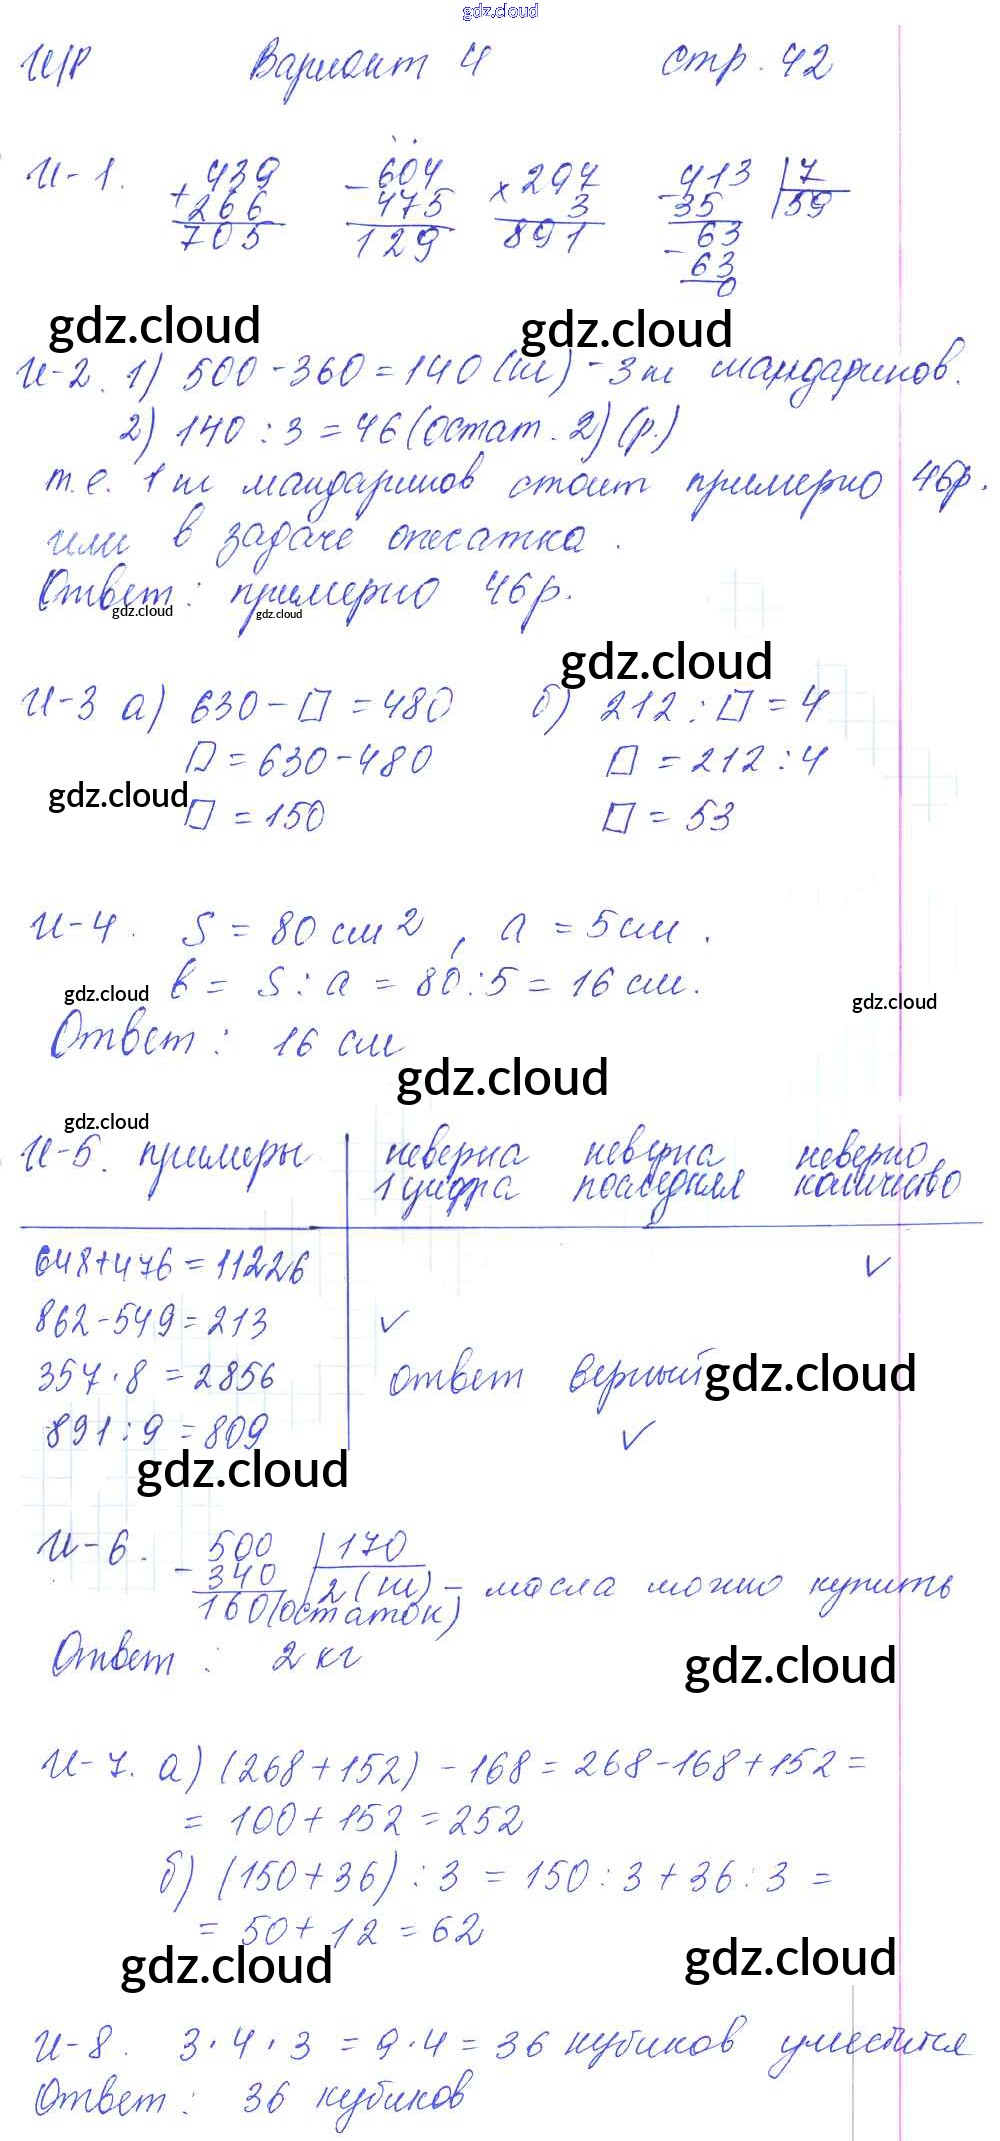 gdz.cloud
И/Р Вариант 4 стр. 42
И-1. +439 -604 ×297 -413 |7
266 475 3 35 59
705 129 891 63
-63
0
gdz.cloud gdz.cloud
И-2. 1) 500-360=140 (ш) - 3ш мандаринов.
2) 140:3=46 (остат. 2) (р.)
т.е. 1ш мандаринов стоит примерно 46р.
или в задаче опесатка.
Ответ: примерно 46р.
gdz.cloud gdz.cloud
gdz.cloud
И-3 а) 630-□=480 б) 212:□=4
□=630-480 □=212:4
gdz.cloud
□=150 □=53
И-4. S=80см2, а=5см.
gdz.cloud в= S:а=80:5=16см. gdz.cloud
Ответ: 16 см
gdz.cloud
gdz.cloud
И-5. примеры неверна неверна неверно
1 цифра последняя количество
648+476=11226 ✓
862-549=213 ✓
357·8=2856 ответ верный gdz.cloud
891:9=809 ✓
gdz.cloud
И-6. -500 |170
340 2(ш) - масла можно купить
160(остаток)
Ответ: 2кг
gdz.cloud
И-7. а) (268+152)-168=268-168+152=
=100+152=252
б) (150+36):3=150:3+36:3=
=50+12=62
gdz.cloud gdz.cloud
И-8. 3·4·3=9·4=36 кубиков уместится
Ответ: 36 кубиков